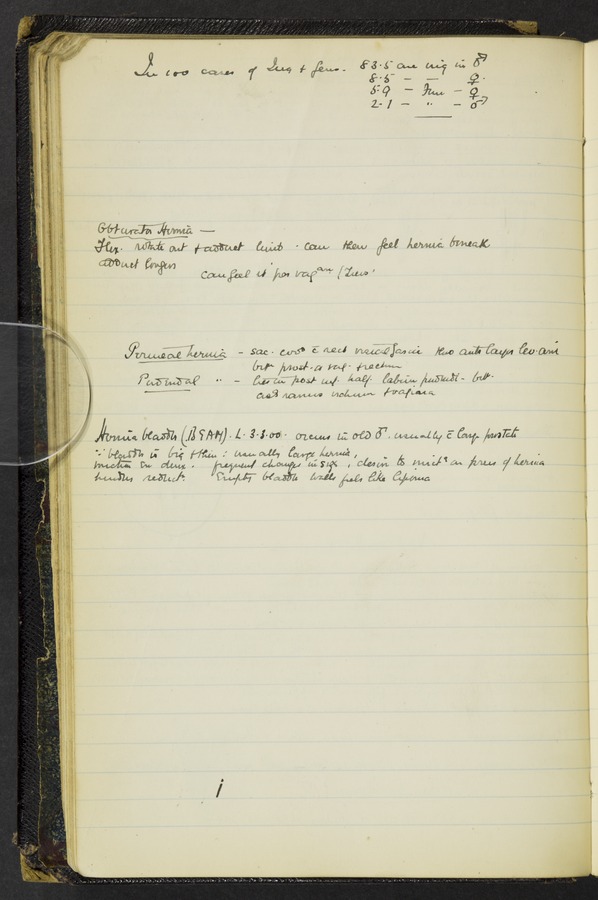 In 100 cases of Ing + fem. 83.5 are ing in ♂
8.5 - — ♀.
5.9 - Fem - ♀
2.1 - " - ♂
Obturator Hernia —
Flex. rotate out + adduct limb. can then feel hernia beneath
adduct longus
can feel it per vag
Perineal hernia - sac. cov^d c̄ rect vesical fascia thro ant. layer lev. ani
bet^n prost. or vag. + rectum
Pudendal " - lies in post inf. half. labium pudendi - bet^n
asc^g ramus ischium + vagina
Hernia bladder L. 3.3.00. occurs in old ♂. usually c̄ large prostate
∵ bladder is big + thin: usually large hernia,
frequent changes in size, desire to mict^n on press of hernia
Empty bladder walls feels like lipoma
i